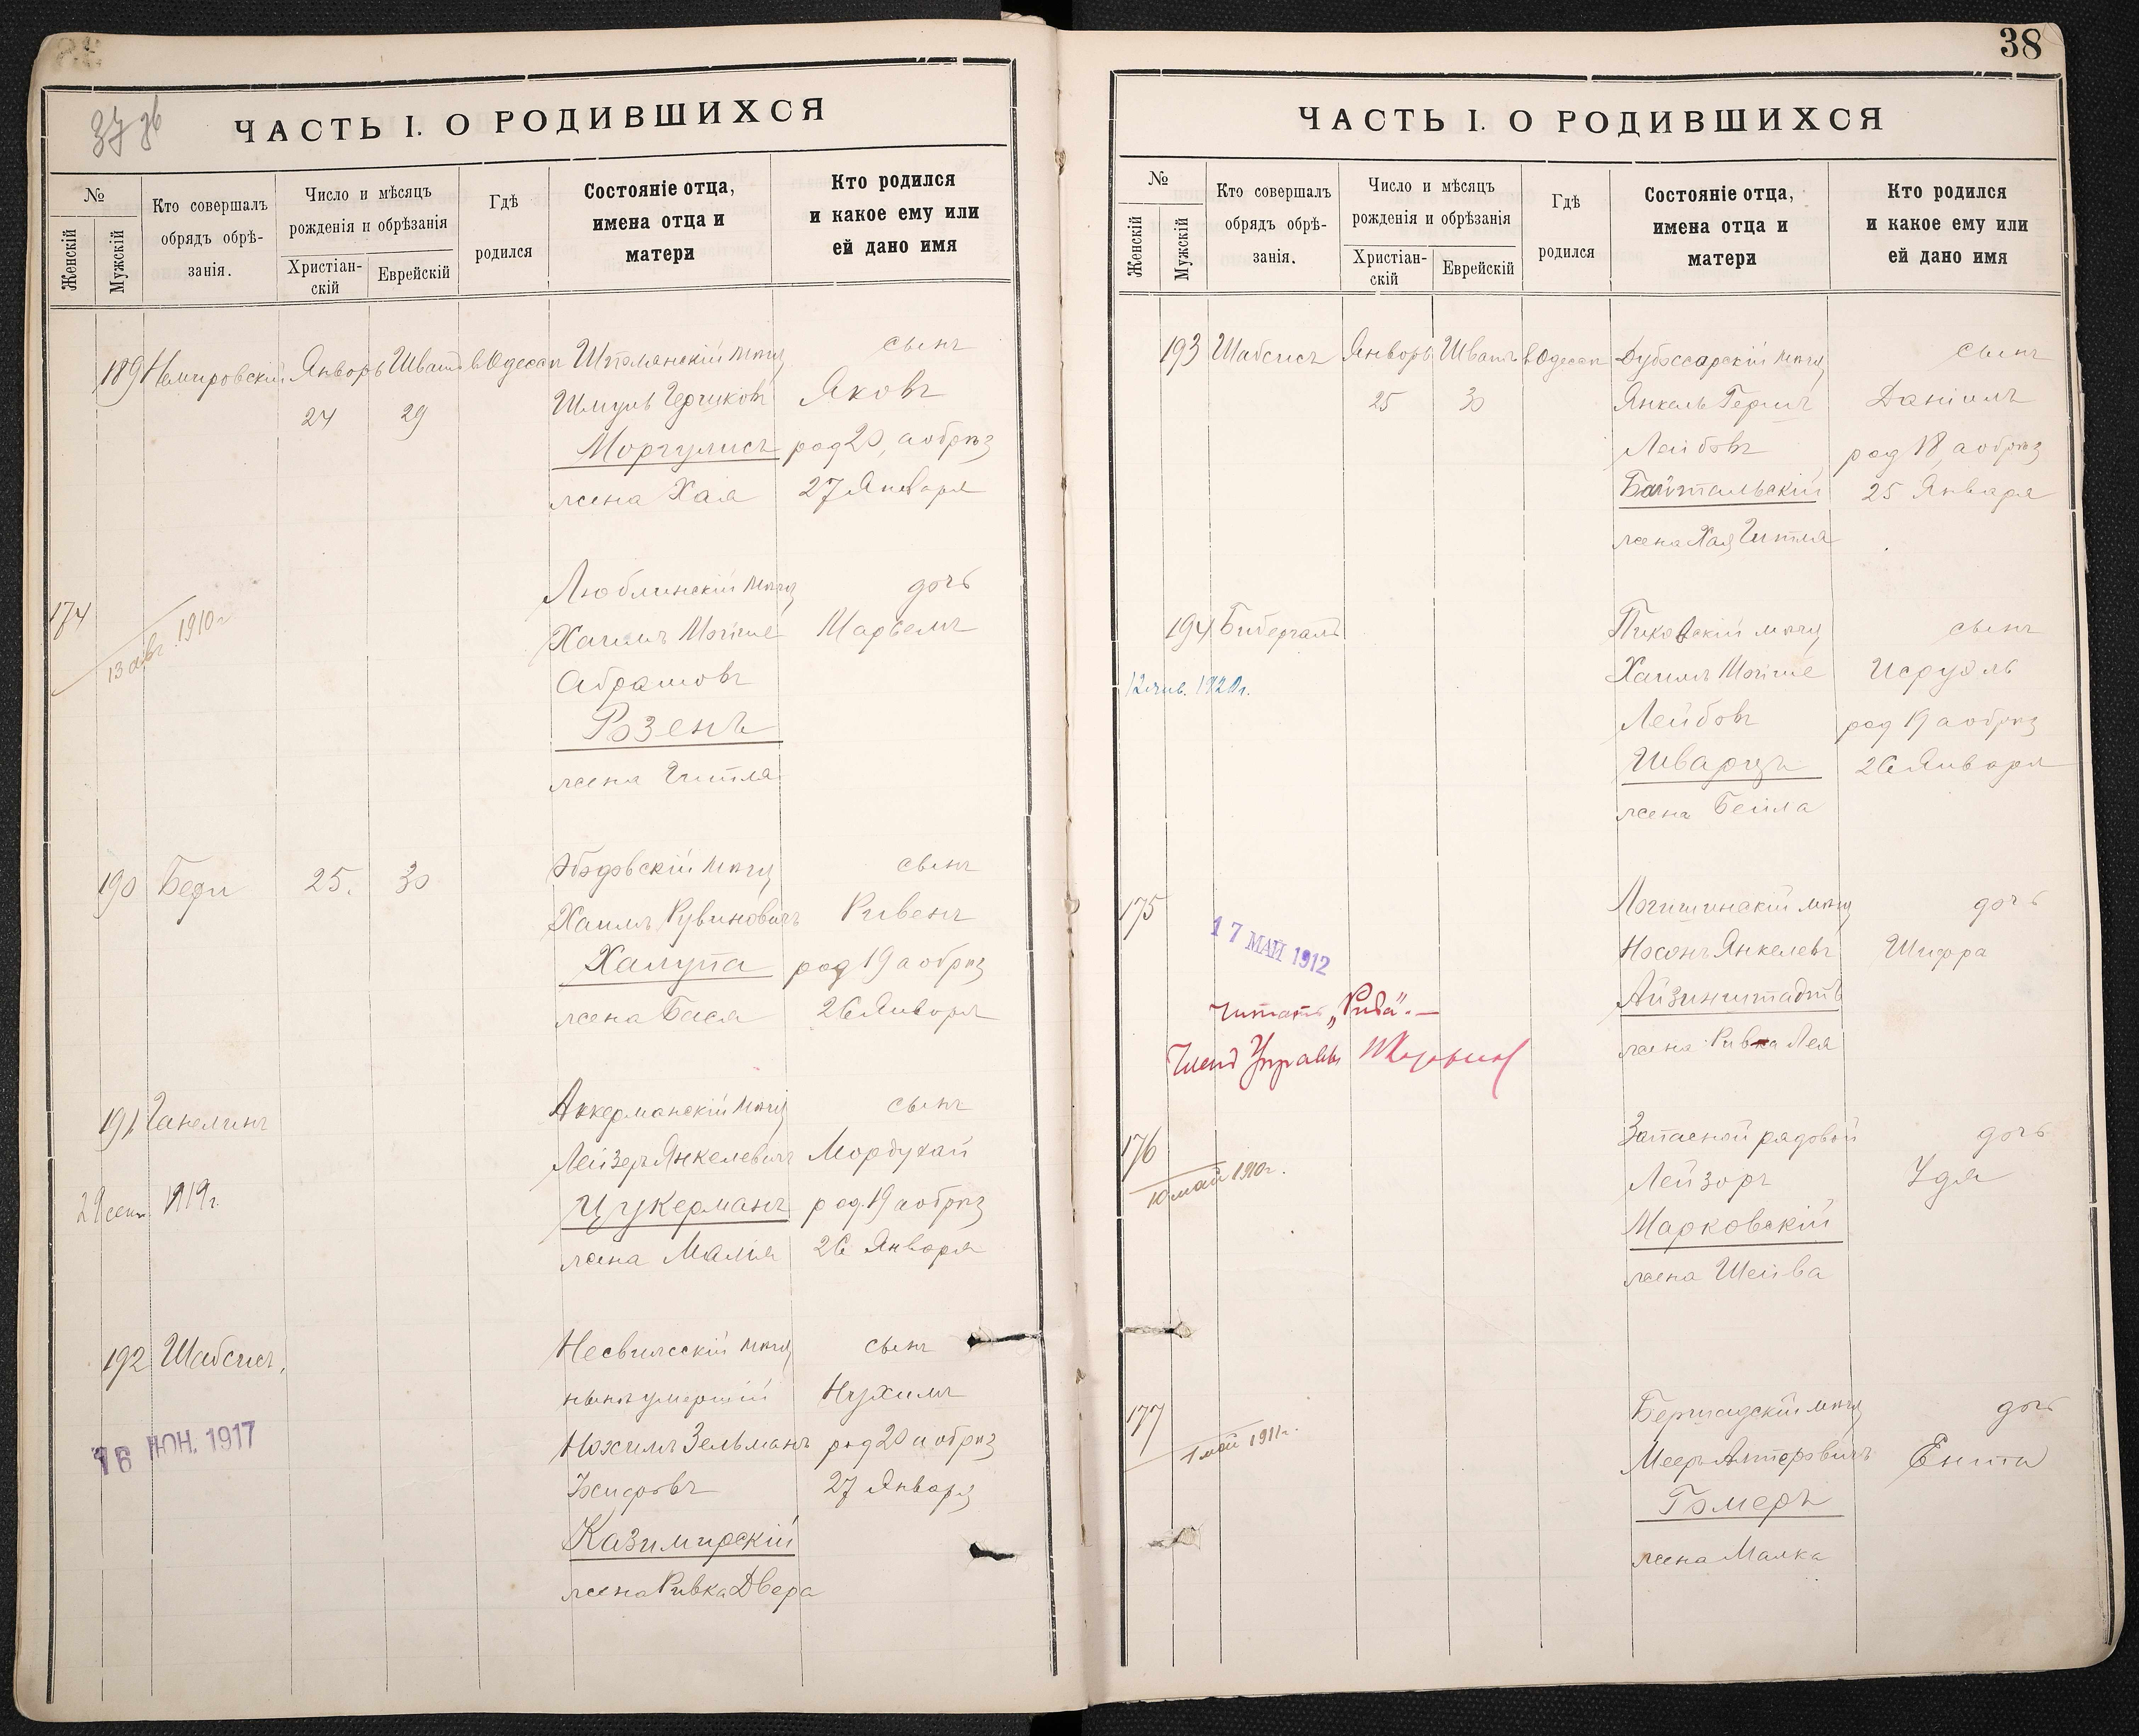 37 об
ЧАСТЬ I. О РОДИВШИХСЯ
№
Женскій
Мужскій
Кто совершалъ
обрядъ обрѣ-
занія.
Число и мѣсяцъ
рожденія и обрѣзанія
Христіан-
скій
Еврейскій
Гдѣ
родился
Состояніе отца,
имена отца и
матери
Кто родился
и какое ему или
ей дано имя
189 Немировскій Январь Шватъ в Одессѣ мѣщ сынъ
24 29 Шмуль Яковъ
Моргулисъ род 20, а обрѣз
жена Хая 27 Января
174
13 авг. 1910 г
Люблинскій мѣщ дочь
Хаимъ
Абрамовъ
Розенъ
жена Гитля
190 Бери 25. 30 мѣщ сынъ
Хаимъ Рувиновичъ Рувенъ
Халупа род 19 а обрѣз
жена Бася 26 Января
191 Ганелинъ Аккерманскій мѣщ сынъ
Лейзеръ Янкелевичъ Мордухай
29 сент 1919 г. Цукерманъ род. 19 а обрѣз
жена Малія 26 Января
192 Шабсисъ. Несвижскій мѣщ сынъ
нынѣ умершій Нухимъ
16 ІЮН. 1917
Нохимъ Зельманъ род 20 а обрѣз
27 Января
Казимирскій
жена Ривка Двера
38
ЧАСТЬ I. О РОДИВШИХСЯ
№
Женскій
Мужскій
Кто совершалъ
обрядъ обрѣ-
занія.
Число и мѣсяцъ
рожденія и обрѣзанія
Христіан-
скій
Еврейскій
Гдѣ
родился
Состояніе отца,
имена отца и
матери
Кто родился
и какое ему или
ей дано имя
193 Шабсисъ Январь Шватъ в Одессѣ Дубоссарскій мѣщ сынъ
25 30 Янкель Гершъ Даніилъ
Лейбовъ род 18, а обрѣз
Байтальскій 25 Января
жена Хая Гитля
194 Пиковскій мѣщ сынъ
Хаимъ Исруэль
12 янв. 1920 г.
Лейбовъ род 19 а обрѣз
Шварцъ 26 Января
жена Бейла
175 Логишинскій мѣщ дочь
17 МАЙ 1912
Носонъ Янкелевъ Шифра
Айзинштадтъ
Читать
жена Ривка Лея
Членъ Управы
176 Запасной рядовой дочь
10 май 1910 г.
Лейзоръ Удя
Марковскій
жена Шейва
177 Бершадскій мѣщ дочь
1 май 1911 г.
Мееръ Ента
Гомеръ
жена Малка